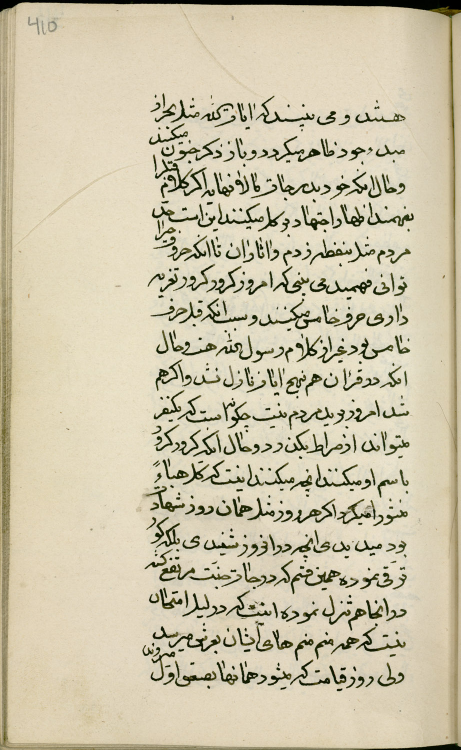 410
هستند و می بینند که ایات الله مثل بحر از
مبدء جود ظاهر میگردد و باز ذکر خون میکنند
و حال انکه خود بدرجات لا نهایه اگر کلام قبل را
بفهمند اظهار اجتهاد در کل میکنند این است حد
مردم مثل بنقطه زدم و اثار ان تا انکه حروف را
توانی فهمید می بینی که امروز کرور کرور تعزیه
داری حرف خامس میکنند و سبب انکه قبل حرف
خامس بود غیر از کلام رسول الله هست و حال
انکه در قران هم نهج ایات نازل نشد و اگر هم
شد امروز بر ید مردم نیست چگونه است که یکنفر
میتواند از صراط بگذرد و حال انکه کرور کرور
باسم او میکنند انچه میکنند اینست که کل هباء
منثورا میگردد اگر هر روز مثل همان روز شهادت
بود میدیدی انچه در انروز شنیدی بلکه کور
ترقی نموده همین قسم که درجات جنت مرتفع گشته
در انجا هم تنزل نموده اینست که در لیل امتحان
نیست که همه منم منم های ایشان بعرش میرسد
ولی روز قیامت که میشود همانها بصعق اول میروند